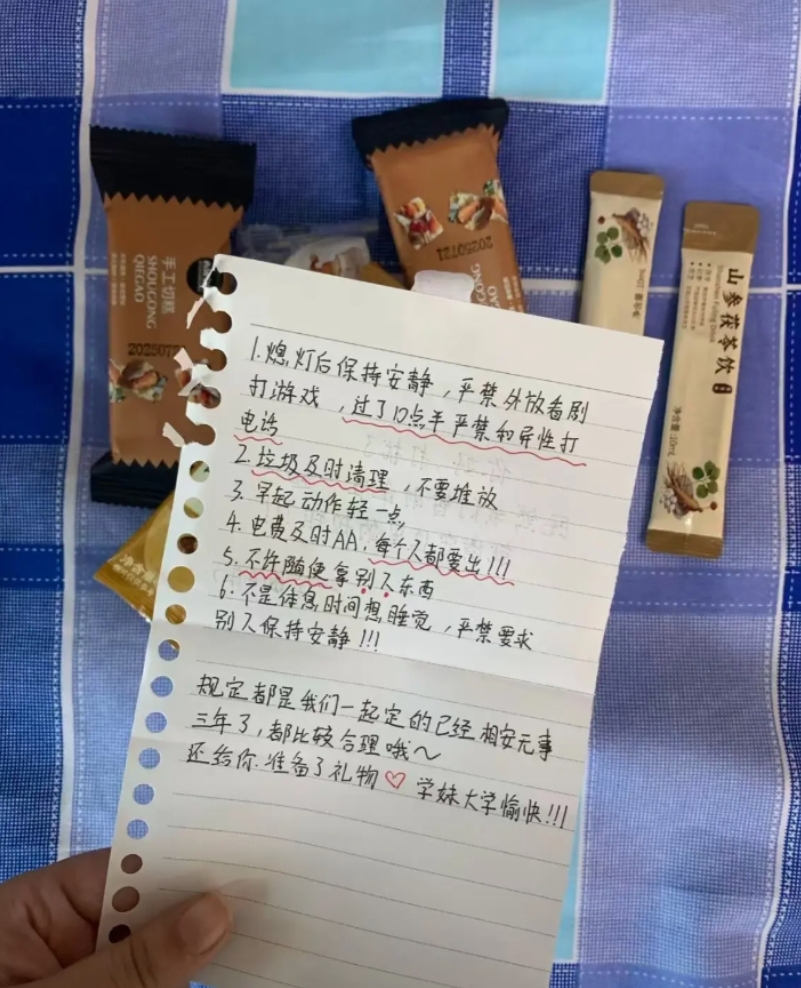 手工切糕
SHOUGONG
QIEGAO
20250721
20250721
山参茯苓饮
净含量:10mL
1.熄灯后保持安静,严禁外放看剧
打游戏,过了10点半严禁和异性打
电话
2.垃圾及时清理,不要堆放
3.早起动作轻一点
4.电费及时AA,每个人都要出!!!
5.不许随便拿别人东西
6.不是休息时间想睡觉,严禁要求
别人保持安静!!!
规定都是我们一起定的已经相安元事
三年了,都比较合理哦～
还给你准备了礼物♡ 学妹大学愉快!!!